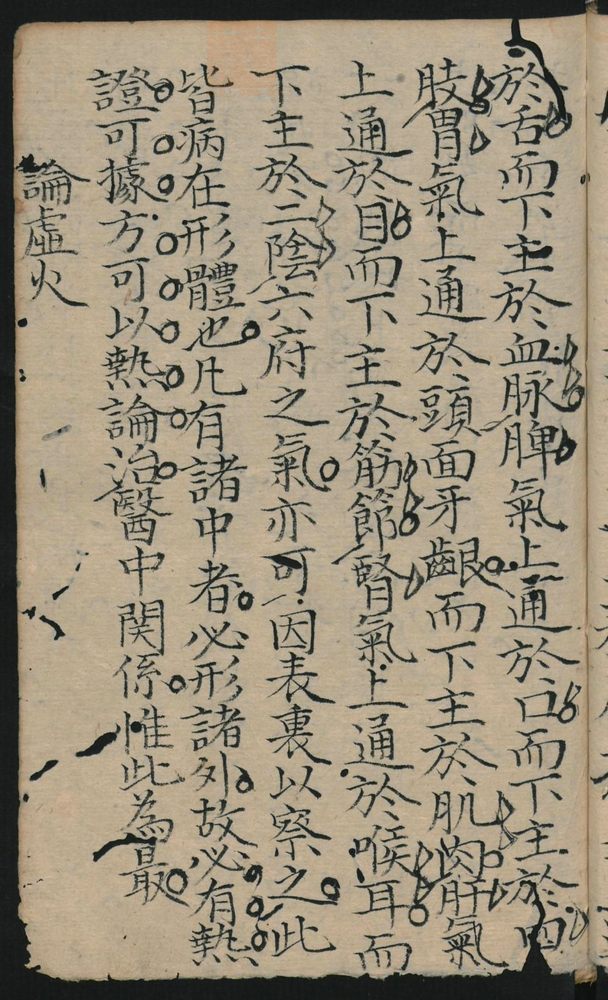 於舌而下主於血脉脾氣上通於口而下主於四
肢胃氣上通於頭面牙齦而下主於肌肉肝氣
上通於目而下主於筋節腎氣上通於喉耳而
下主於二陰六府之氣亦可因表裏以察之此
皆病在形體也凡有諸中者必形諸外故必有熱
證可據方可以熱論治醫中関係惟此為最
論虛火